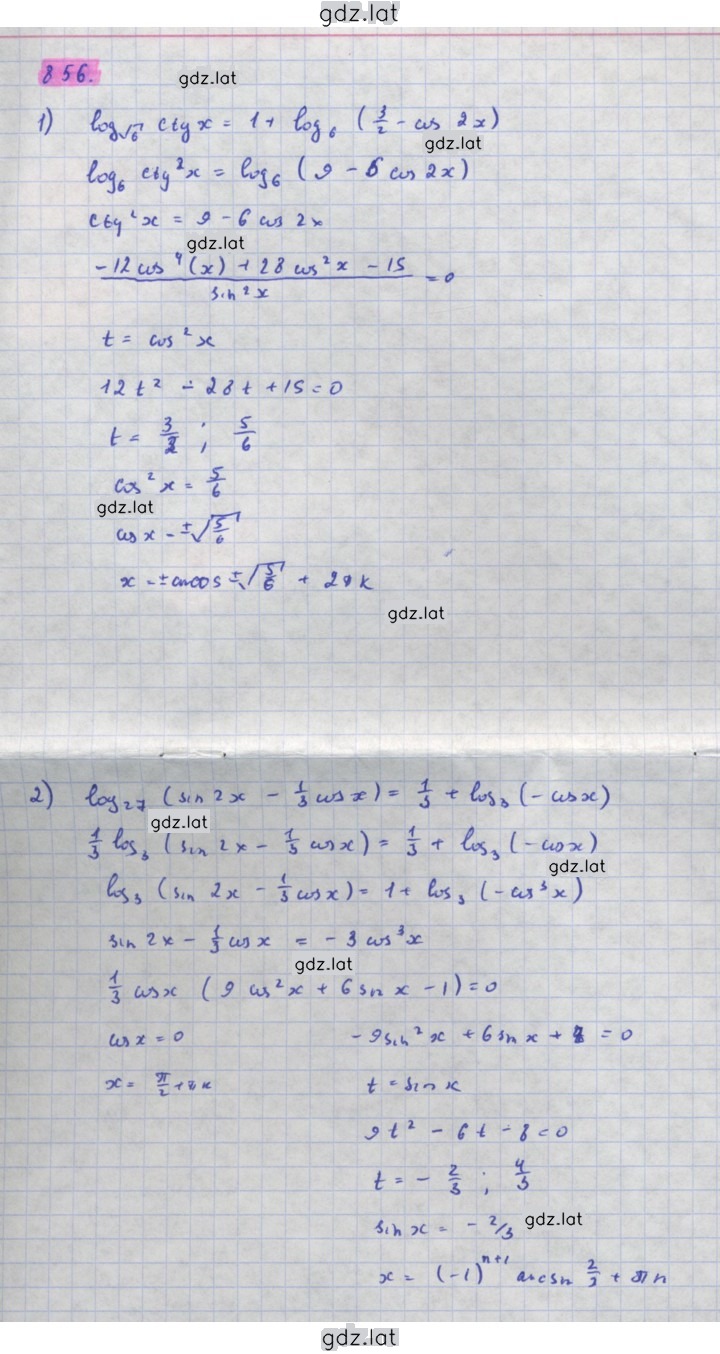 gdz.lat
856.
gdz.lat
1) log√6 ctg x = 1 + log6 (3/2 - cos 2x)
gdz.lat
log6 ctg²x = log6 (9 - 6 cos 2x)
ctg²x = 9 - 6 cos 2x
gdz.lat
(-12 cos⁴(x) + 28 cos²x - 15)/(sin²x) = 0
t = cos²x
12t² - 28t + 15 = 0
t = 3/2 ; 5/6
cos²x = 5/6
gdz.lat
cos x = ±√(5/6)
x = ± arccos ±√(5/6) + 2πk
gdz.lat
2) log27 (sin 2x - 1/3 cos x) = 1/3 + log3 (-cos x)
gdz.lat
1/3 log3 (sin 2x - 1/3 cos x) = 1/3 + log3 (-cos x)
gdz.lat
log3 (sin 2x - 1/3 cos x) = 1 + log3 (-cos³x)
sin 2x - 1/3 cos x = -3 cos³x
gdz.lat
1/3 cos x (9 cos²x + 6 sin x - 1) = 0
cos x = 0 -9 sin²x + 6 sin x + 8 = 0
x = π/2 + πk t = sin x
9t² - 6t - 8 = 0
gdz.lat
t = - 2/3 ; 4/3
sin x = - 2/3 gdz.lat
x = (-1)ⁿ⁺¹ arcsin 2/3 + πn
gdz.lat